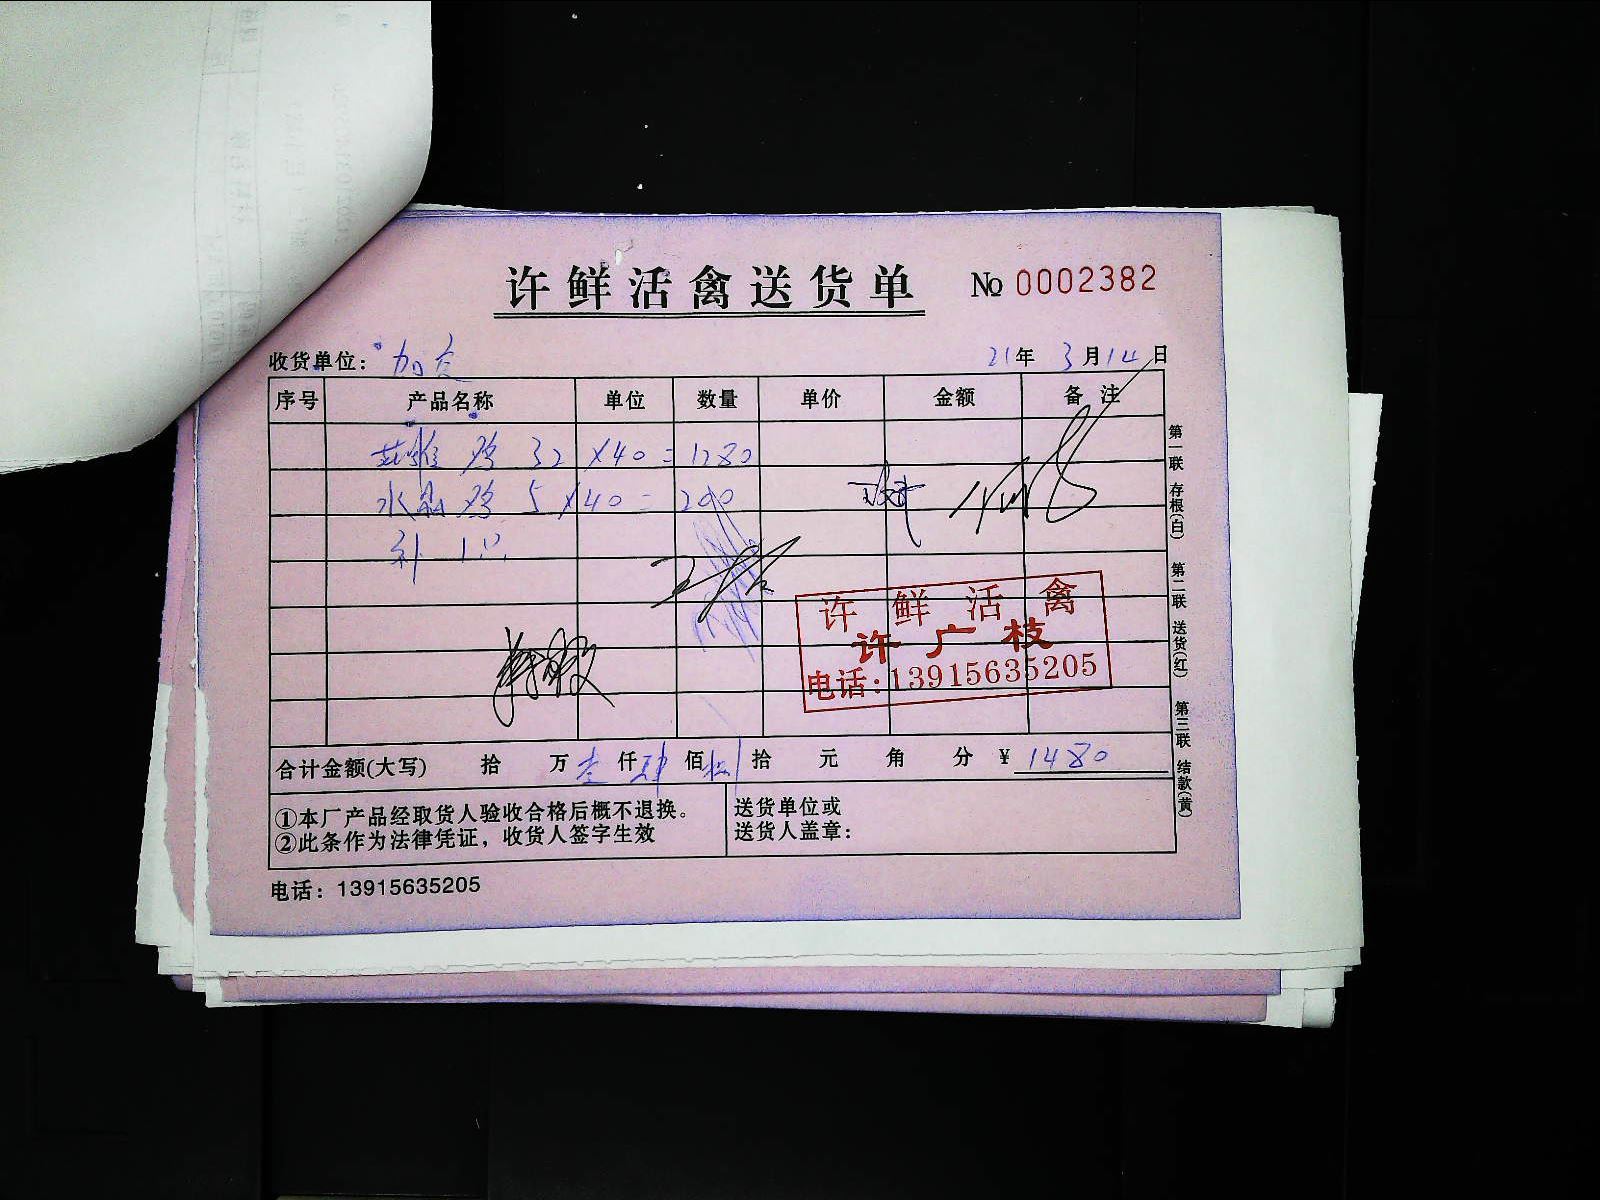 许鲜活禽送货单 № 0002382
收货单位： 加 21年 3月14日
序号 产品名称 单位 数量 单价 金额 备注
鸡 32 ×40 = 1280
水晶鸡 5 ×40 = 200
补 1只
许鲜活禽
许广枝
电话：13915635205
合计金额(大写) 拾 万 壹 仟 肆 佰 捌 拾 元 角 分 ¥ 1480
①本厂产品经取货人验收合格后概不退换。
②此条作为法律凭证，收货人签字生效
送货单位或
送货人盖章：
电话：13915635205
第一联 存根(白) 第二联 送货(红) 第三联 结款(黄)